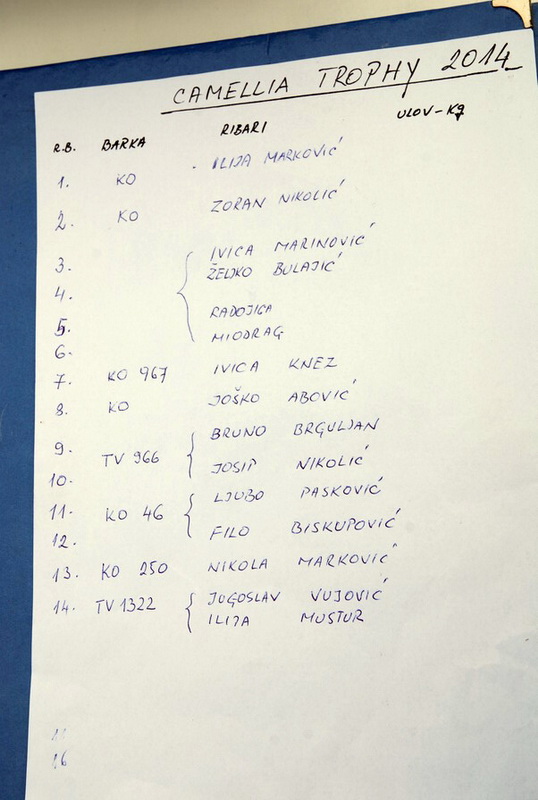 CAMELLIA TROPHY 2014
R.B. BARKA RIBARI ULOV-Kg
1. KO ILIJA MARKOVIĆ
2. KO ZORAN NIKOLIĆ
3. IVICA MARINOVIĆ
ŽELJKO BULAJIĆ
4.
5. RADOJICA
6. MIODRAG
7. KO 967 IVICA KNEZ
8. KO JOŠKO ABOVIĆ
9. BRUNO BRGULJAN
TV 966
10. JOSIP NIKOLIĆ
11. LJUBO PASKOVIĆ
KO 46
12. FILO BISKUPOVIĆ
13. KO 250 NIKOLA MARKOVIĆ
14. TV 1322 JUGOSLAV VUJOVIĆ
ILIJA MUSTUR
16